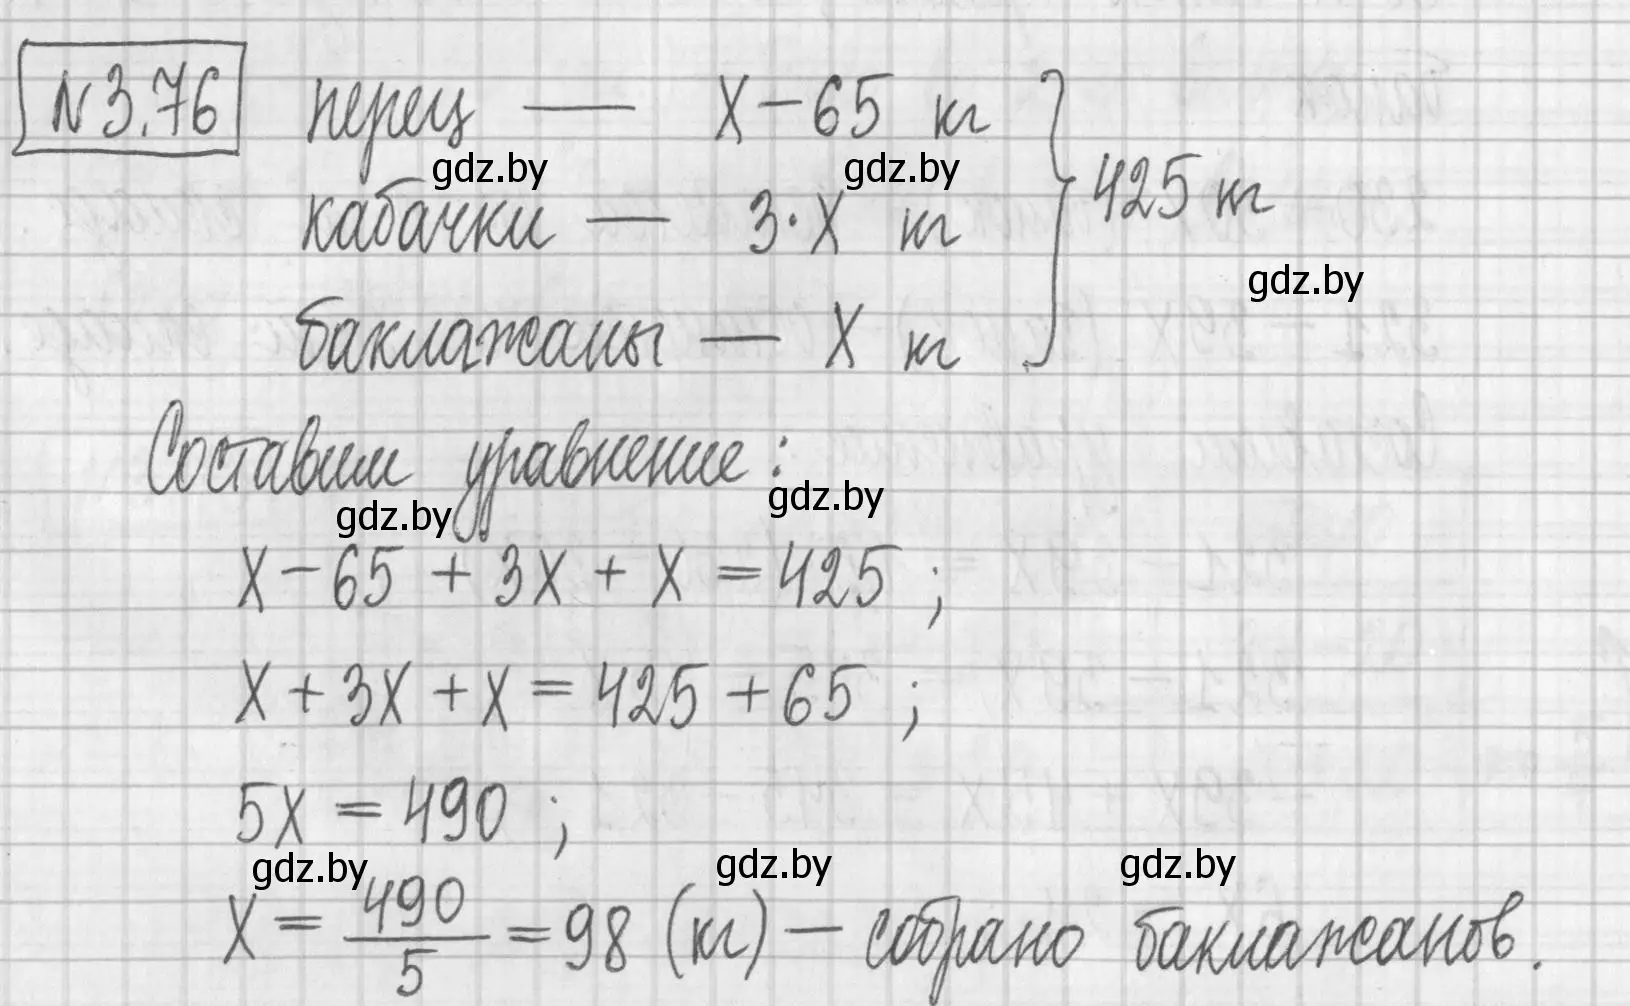 N 3.76 перец — x - 65 кг
gdz.by gdz.by
кабачки — 3·x кг 425 кг
gdz.by
баклажаны — x кг
Составим уравнение:
gdz.by gdz.by
x - 65 + 3x + x = 425 ;
x + 3x + x = 425 + 65 ;
5x = 490 ;
gdz.by gdz.by gdz.by
x = 490/5 = 98 (кг) — собрано баклажанов.